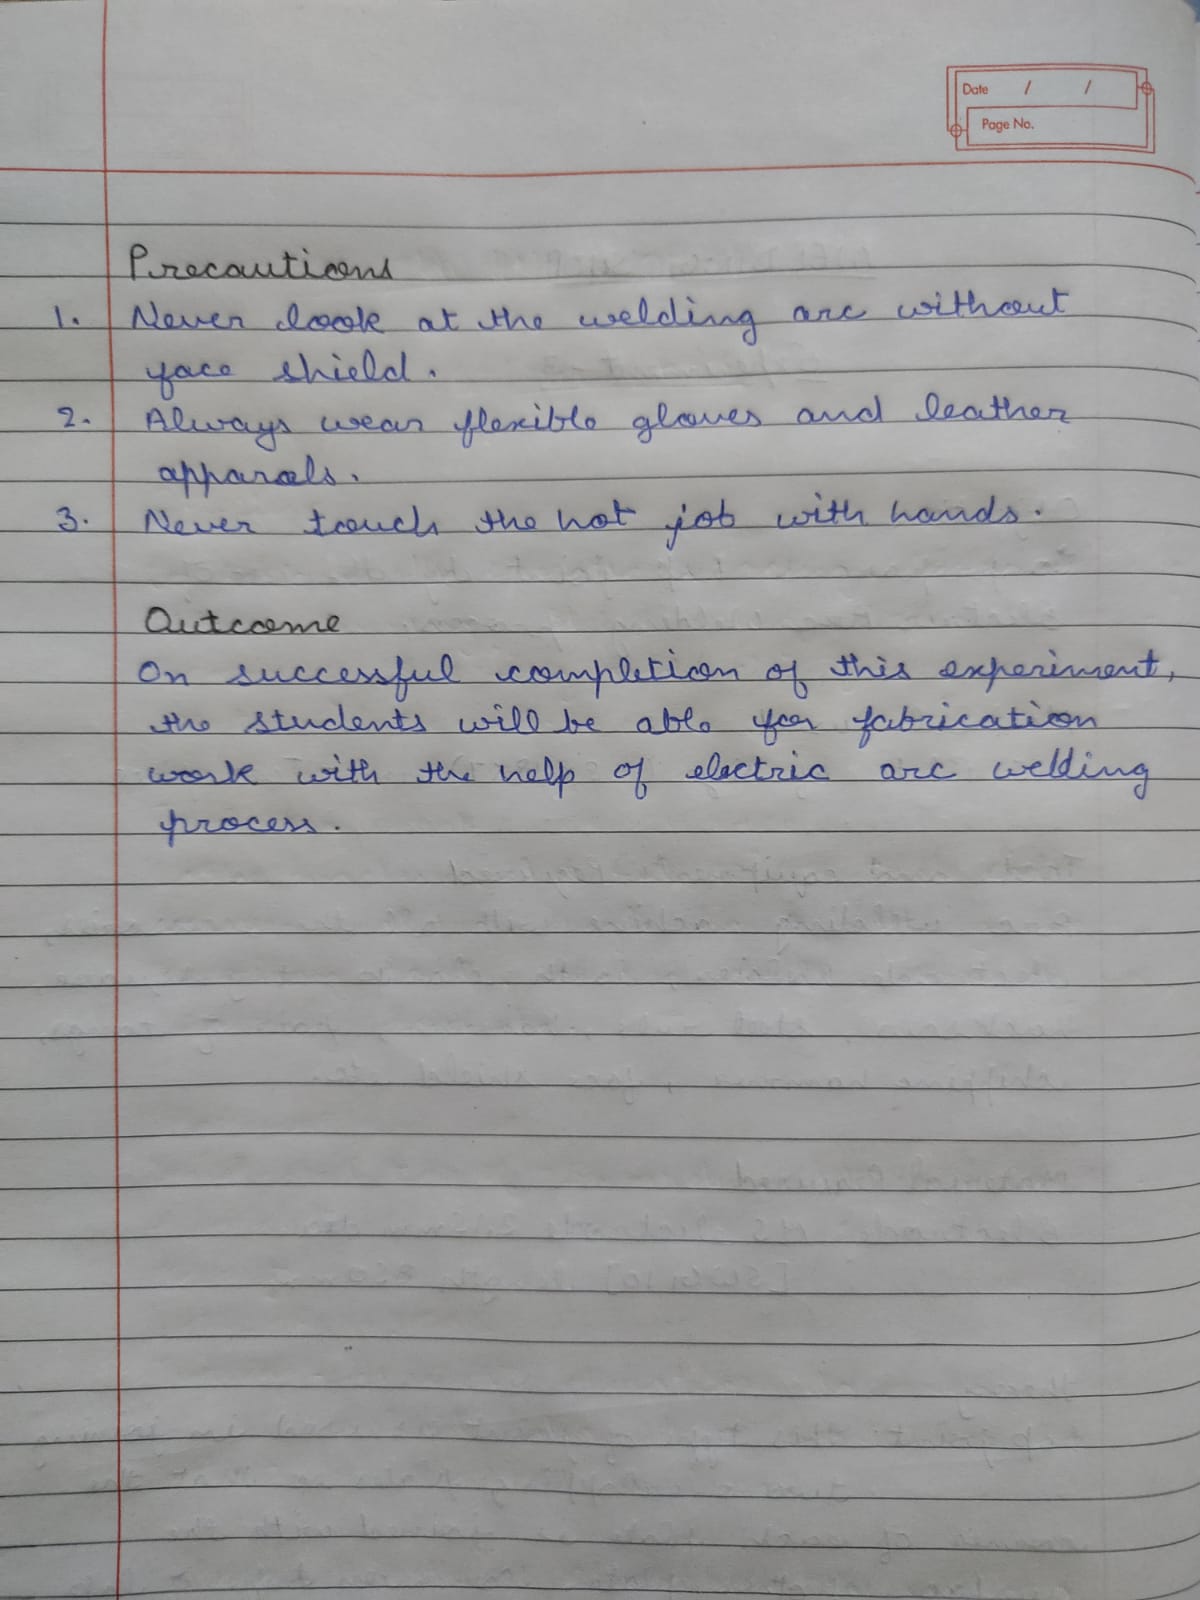 Date / /
Page No.
Precautions
1. Never look at the welding arc without
face shield.
2. Always wear flexible gloves and leather
apparels.
3. Never touch the hot job with hands.
Outcome
On successful completion of this experiment,
the students will be able for fabrication
work with the help of electric arc welding
process.